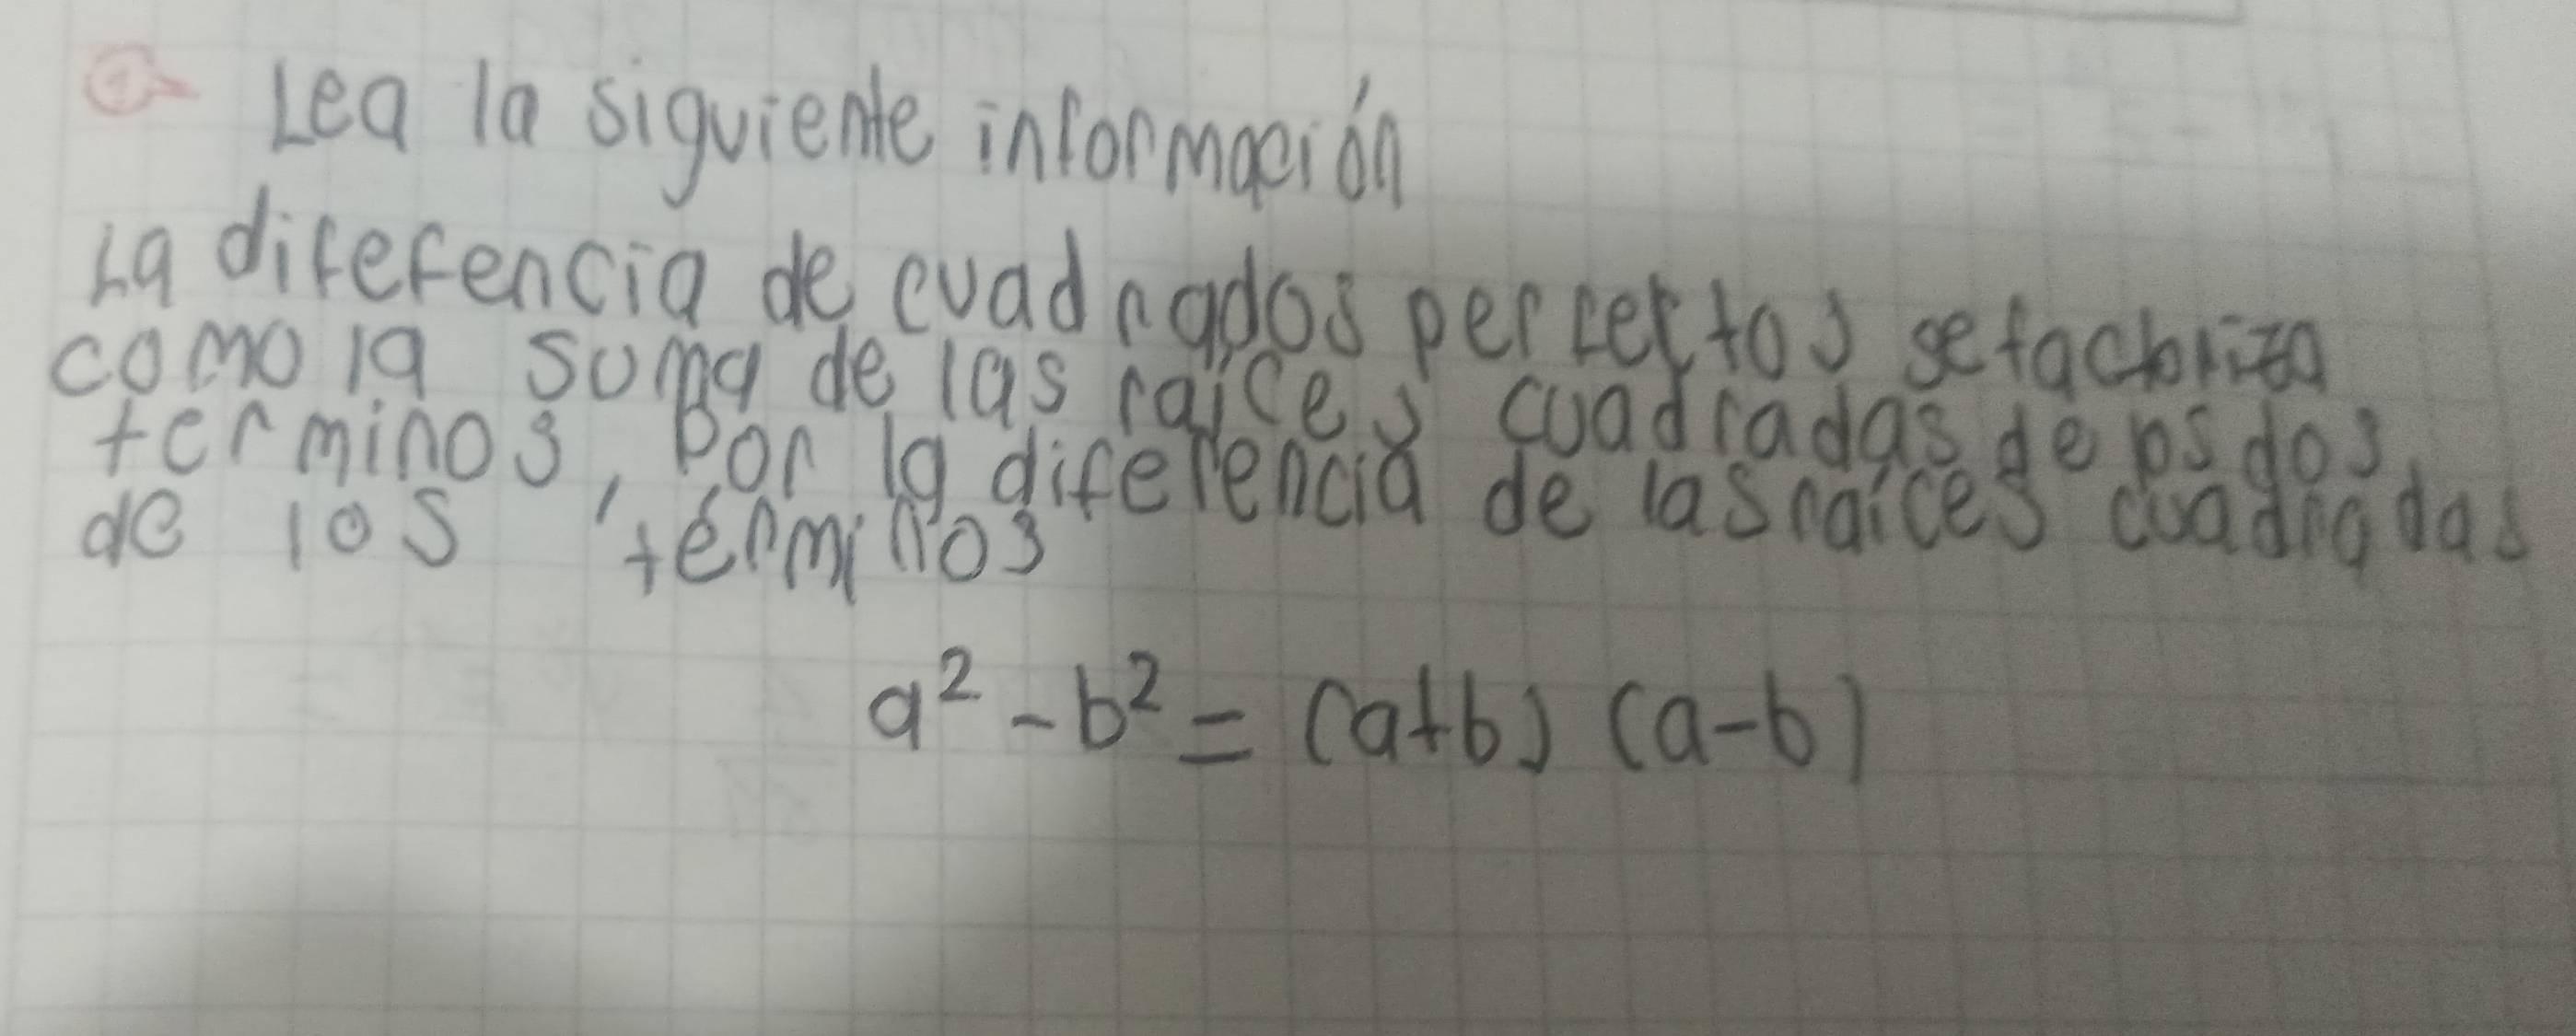 Lea la siguiente información
La diferencia de cuadrados perfectos se factoriza
como la suma de las raíces cuadradas de los dos
terminos, Por la diferencia de las raíces cuadradas
de los términos
a² - b² = (a+b) (a-b)